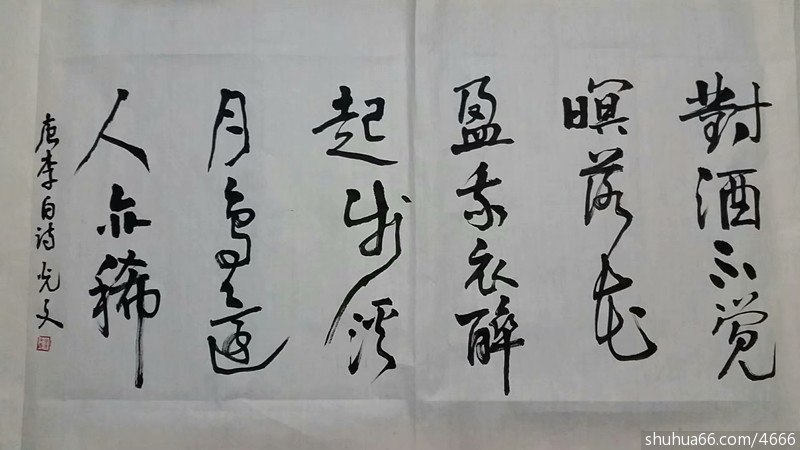 對酒不覺
暝落花
盈我衣醉
起步溪
月鳥還
人亦稀
唐李白詩 光文
shuhua66.com/4666